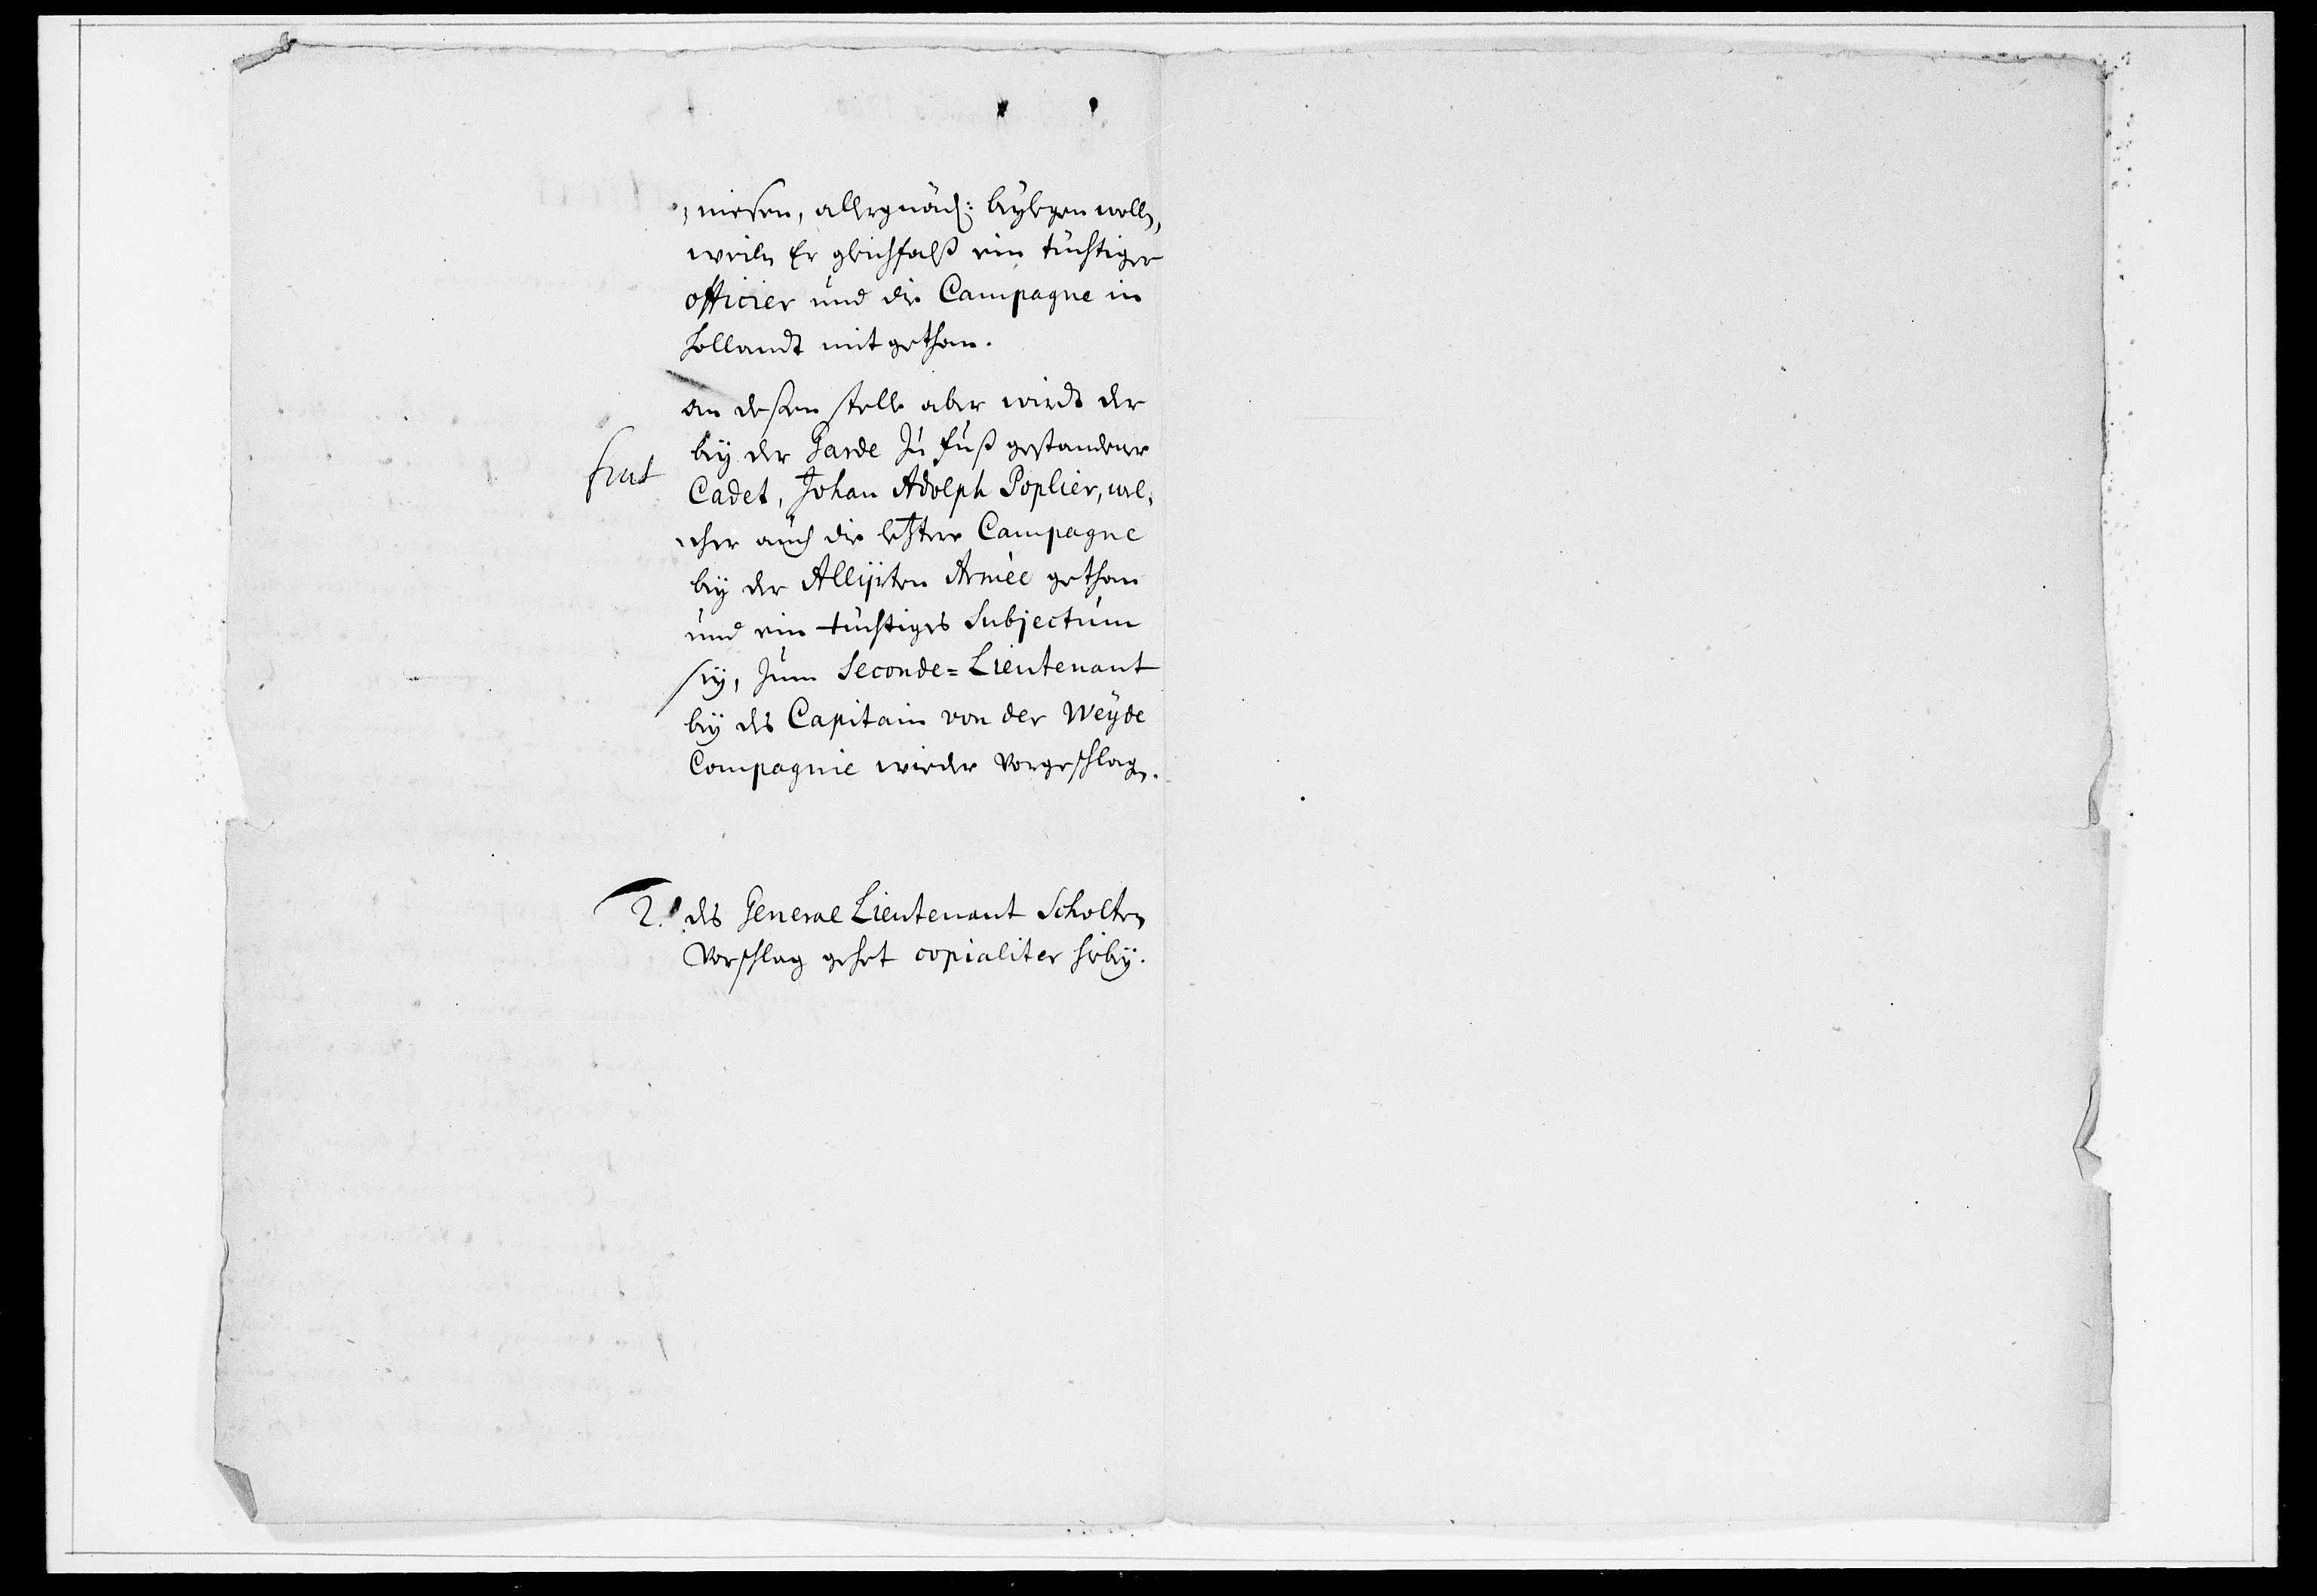 niesen, allergnäd: beylegen wolle,
weiln Er gleichfalß ein tüchtiger
officier und die Campagne in
Hollandt mit gethan.
an deßen stelle aber wirdt der
bey der Garde zu fuß gestandener
fiat
Cadet, Johan Adolph Poplier, wel,
cher auch die letztere Campagne
bey der Allijrten Armèe gethan
und ein tüchtiges Subjectum
sey, zum Seconde=Lieutenant
bey des Capitain von der Weyde
Compagnie wieder vorgeschlagen.
2. des General Lieutenant Scholten
Vorschlag gehet copialiter hiebey.